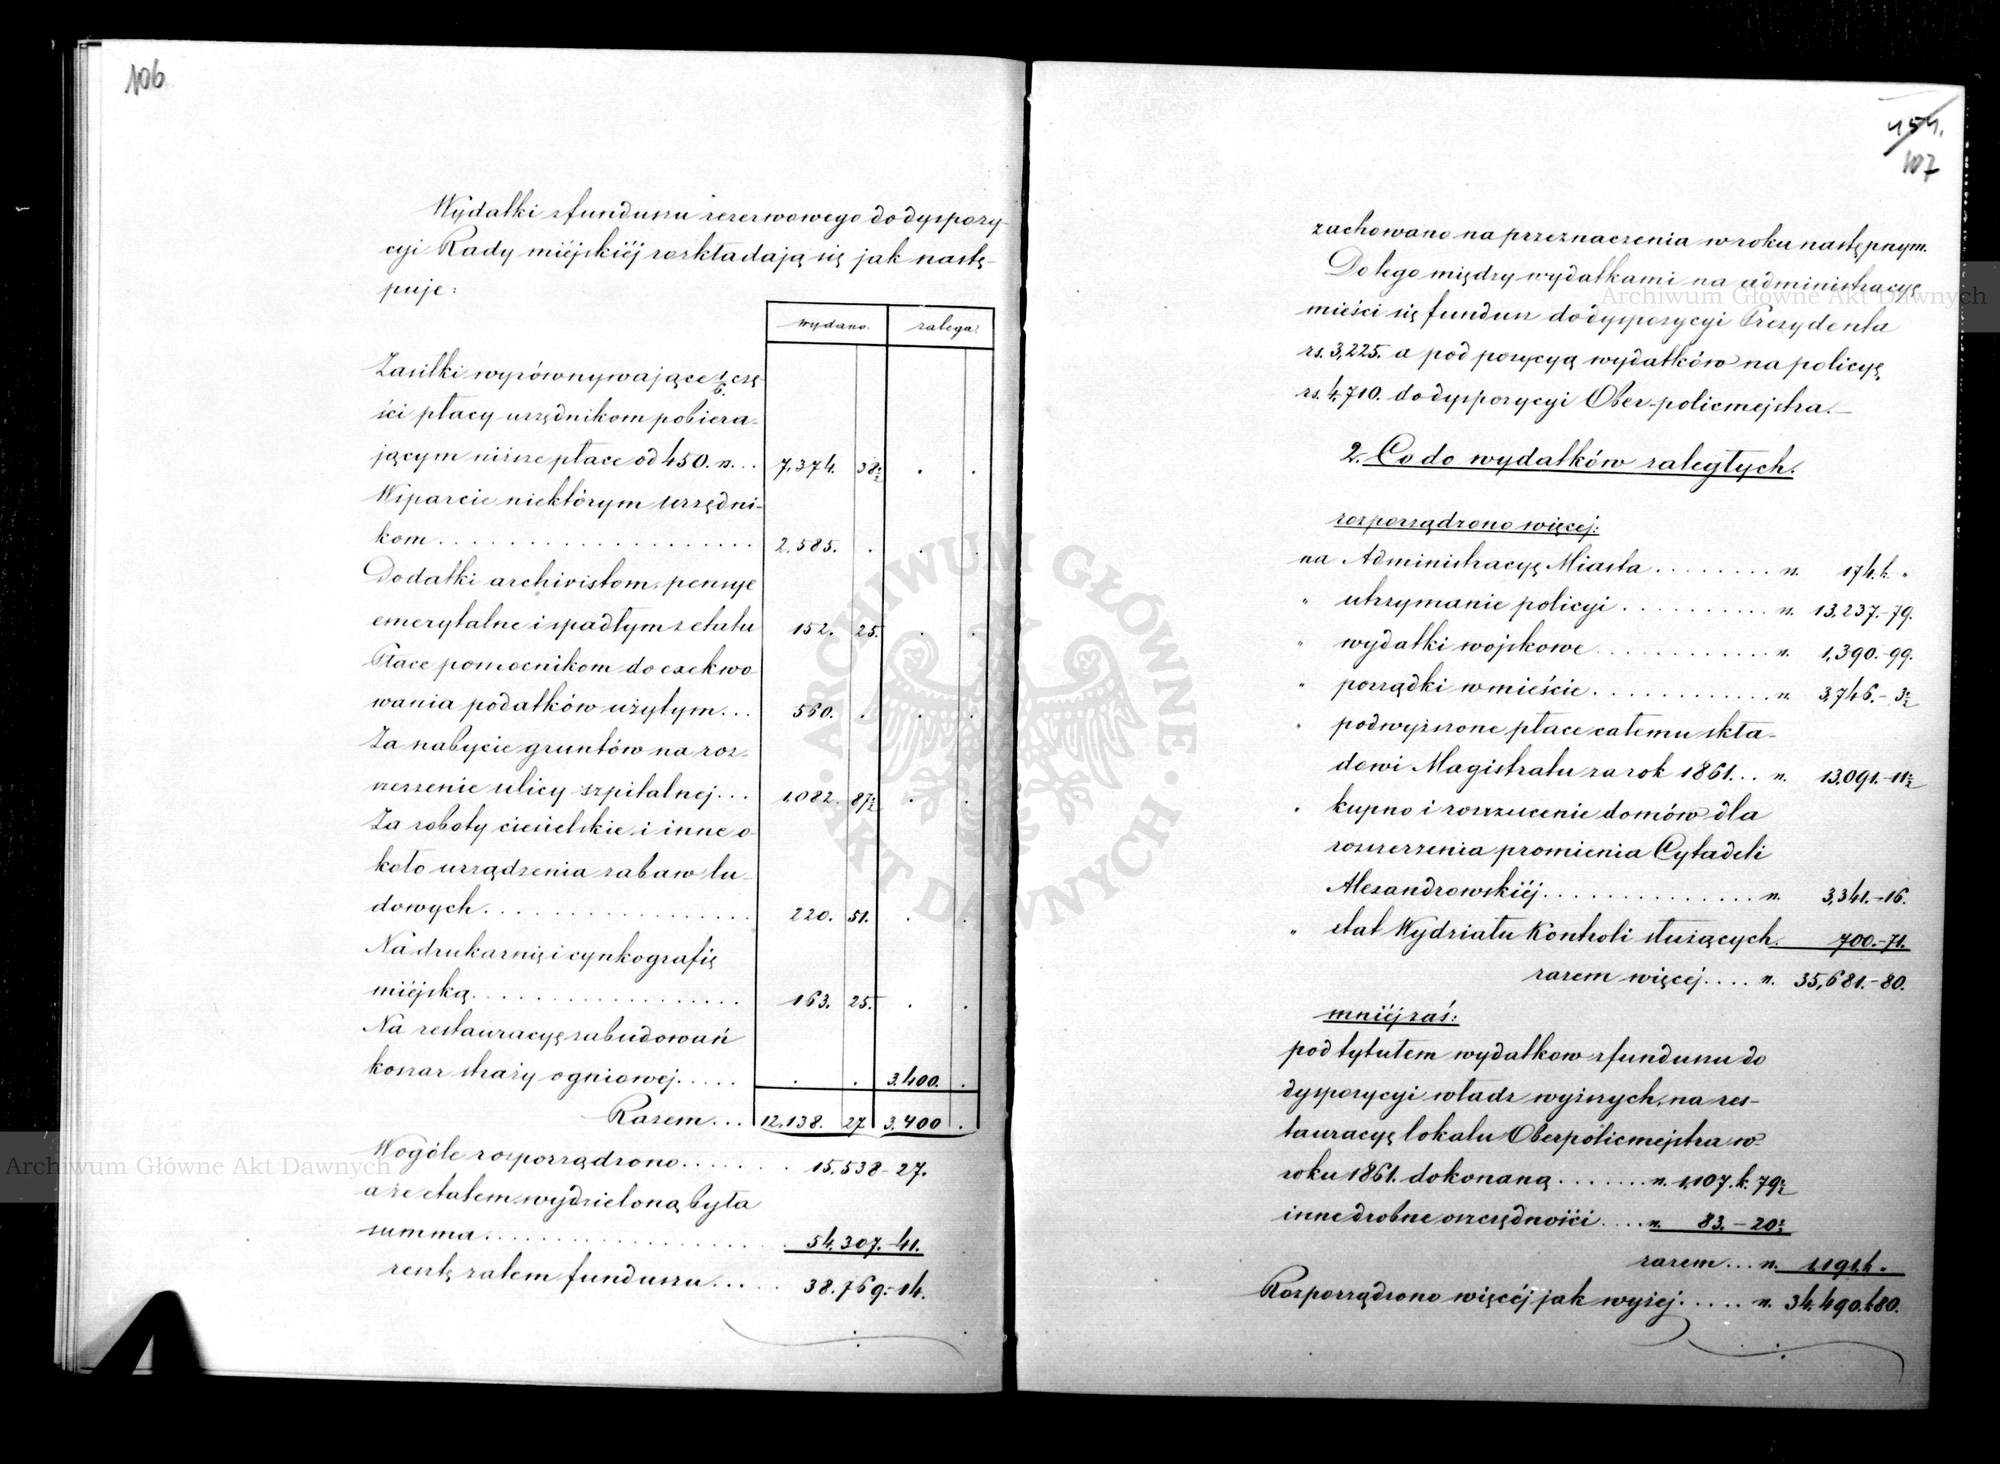 106
Wydatki z funduszu rezerwowego do dyspozy-
cyi Rady miéjskiéj rozkładają się jak nastę-
puje:
wydano. zalega.
Zasiłki wyrównywające 1/6 czę-
ści płacy urzędnikom pobiera-
jącym niższe płace od 450. rs... 7,374. 38½ . .
Wsparcie niektórym urzędni-
kom . . . . . . . . . . 2,585. . . .
Dodatki archivistom, pensye
emerytalne i spadłym z etatu 152. 25. . .
Płace pomocnikom do exekwo
wania podatków użytym... 560. . . .
Za nabycie gruntów na roz-
szerzenie ulicy szpitalnej... 1,082. 87½ . .
Za roboty ciesielskie i inne o-
koło urządzenia zabaw lu-
dowych . . . . . . . . . . 220. 51. . .
Na drukarnię i cynkografię
miéjską . . . . . . . . . . 163. 25. . .
Na restauracyę zabudowań
koszar straży ogniowej..... . . 3,400. .
Razem... 12,138. 27 3,400 .
Wogóle rozporządzono....... 15,538-27.
a że etatem wydzieloną była
summa . . . . . . . . . . 54,307.-41.
resztę zatem funduszu..... 38.769.-14.
154.
107
zachowano na przeznaczenia w roku następnym.
Do tego między wydatkami na administracyę
mieści się fundusz do dyspozycyi Prezydenta
rs. 3,225. a pod pozycyą wydatków na policyę
rs. 4,710. do dyspozycyi Ober-policmejstra.—
2. Co do wydatków zaległych.
rozporządzono więcej:
na Administracyę Miasta ........ rs. 174.k. "
" utrzymanie policyi .......... rs. 13,237.-79.
" wydatki wojskowe ............ rs. 1,390.-99.
" porządki w mieście ............ rs. 3,746.-3½
" podwyższone płace całemu skła-
dowi Magistratu za rok 1861... rs. 13,091.-11½
" kupno i rozrzucenie domów dla
rozszerzenia promienia Cytadeli
Alexandrowskiéj .............. rs. 3,341.-16.
" etat Wydziału Kontroli służących. 700.-71.
razem więcej.... rs. 35,681.-80.
mniéj zaś:
pod tytułem wydatkow z funduszu do
dyspozycyi władz wyższych, na res-
tauracyę lokalu Oberpolicmejstra w
roku 1861. dokonaną ....... rs. 1,107.k.79½
inne drobne oszczędności .... rs. 83.-20½
razem... rs. 1,191.k.-
Rozporządzono więcéj jak wyżej..... rs. 34,490.k80.
Archiwum Główne Akt Dawnych
Archiwum Główne Akt Dawnych
ARCHIWUM GŁÓWNE · AKT DAWNYCH ·